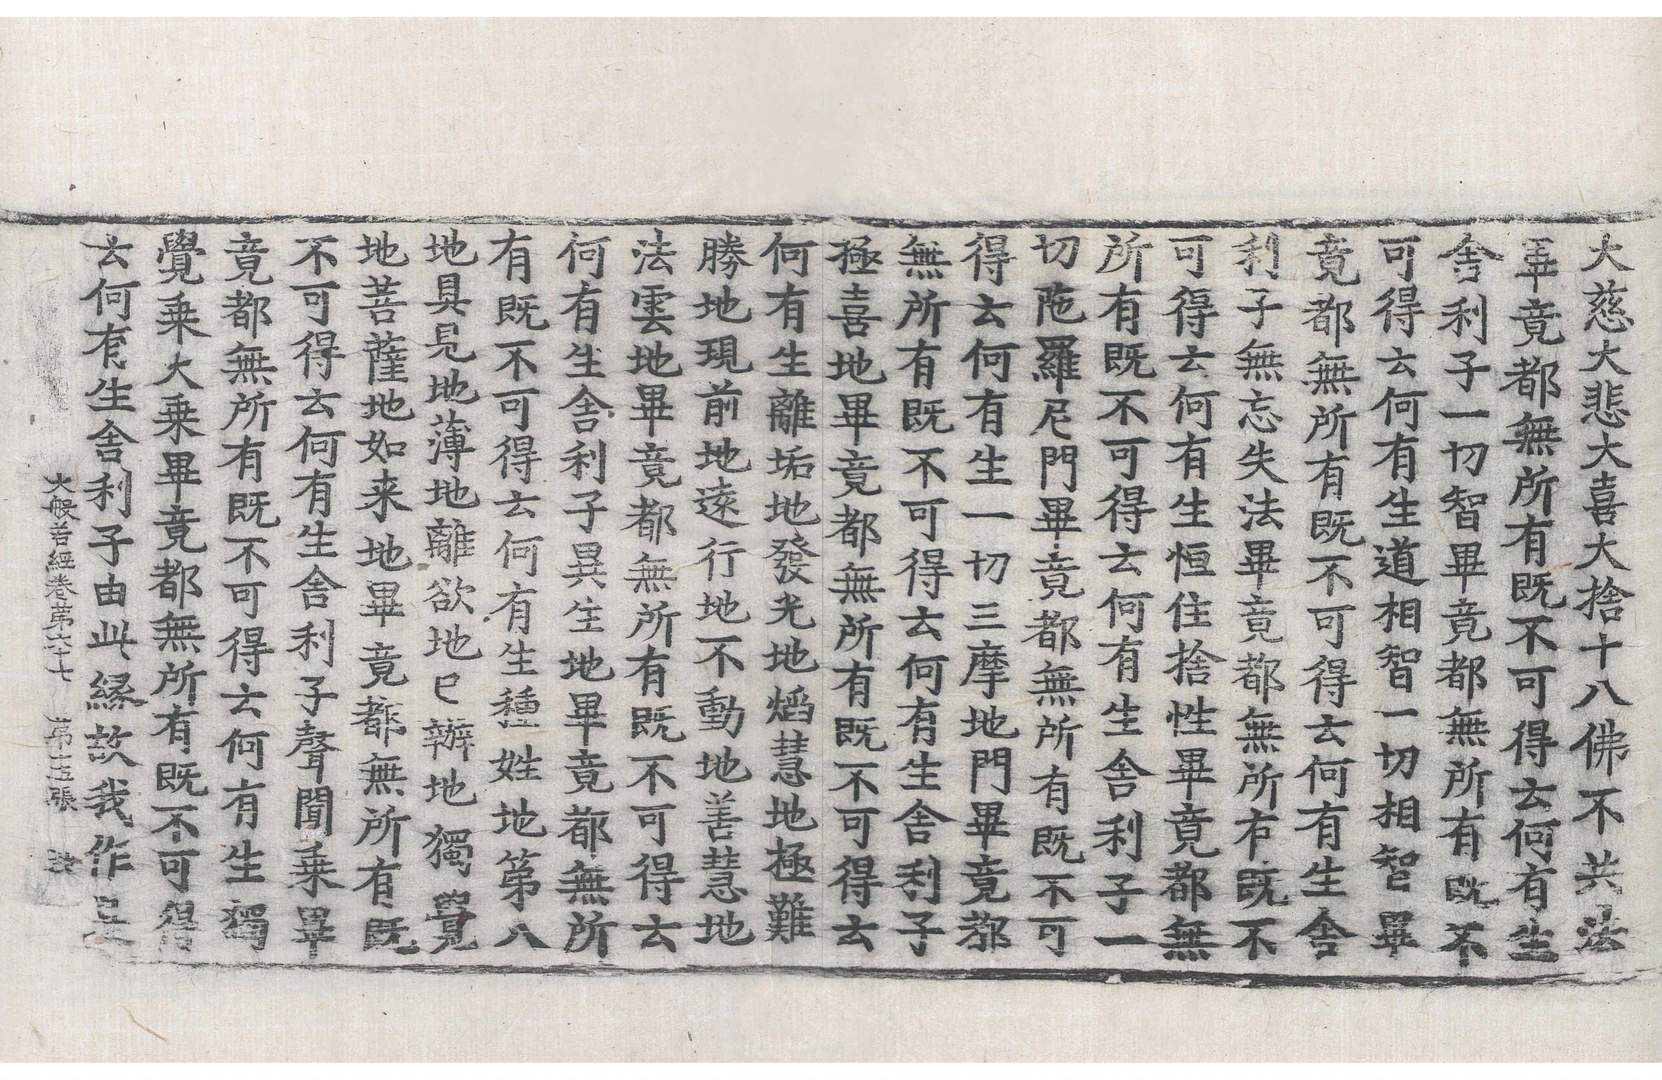 大慈大悲大喜大捨十八佛不共法
畢竟都無所有既不可得云何有生
舍利子一切智畢竟都無所有既不
可得云何有生道相智一切相智畢
竟都無所有既不可得云何有生舍
利子無忘失法畢竟都無所有既不
可得云何有生恒住捨性畢竟都無
所有既不可得云何有生舍利子一
切陁羅尼門畢竟都無所有既不可
得云何有生一切三摩地門畢竟都
無所有既不可得云何有生舍利子
極喜地畢竟都無所有既不可得云
何有生離垢地發光地焰慧地極難
勝地現前地遠行地不動地善慧地
法雲地畢竟都無所有既不可得云
何有生舍利子異生地畢竟都無所
有既不可得云何有生種姓地第八
地具見地薄地離欲地已辦地獨覺
地菩薩地如来地畢竟都無所有既
不可得云何有生舍利子聲聞乗畢
竟都無所有既不可得云何有生獨
覺乗大乗畢竟都無所有既不可得
云何有生舍利子由此縁故我作是
大般若經卷第六十七 第五張